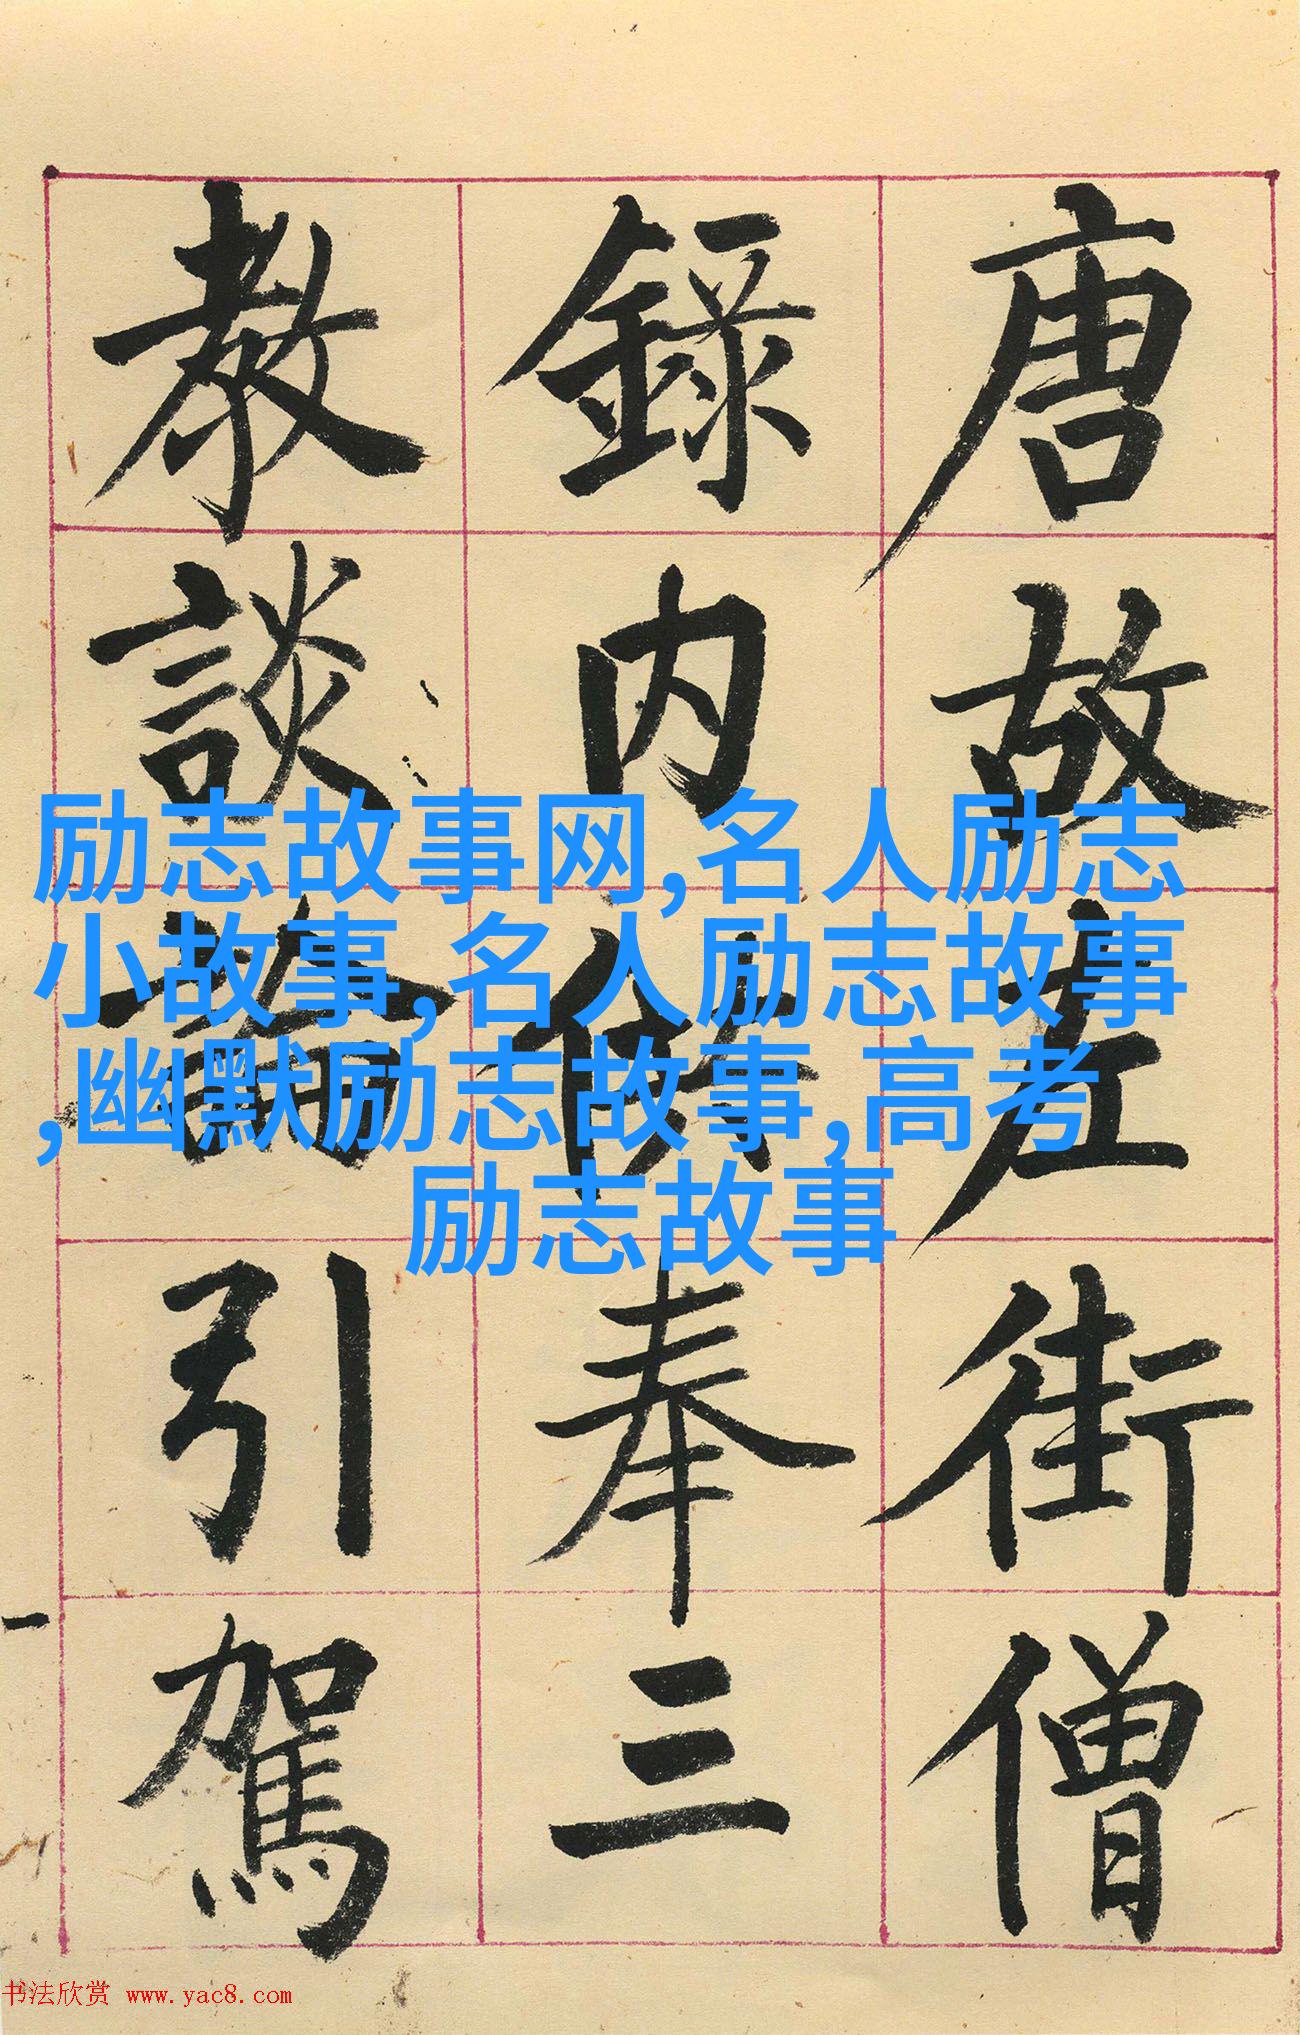 唐故左街僧
錄内供奉三
教談論引駕
励志故事网,名人励志
小故事,名人励志故事
,幽默励志故事,高考
励志故事
书法欣赏 www.yac8.com